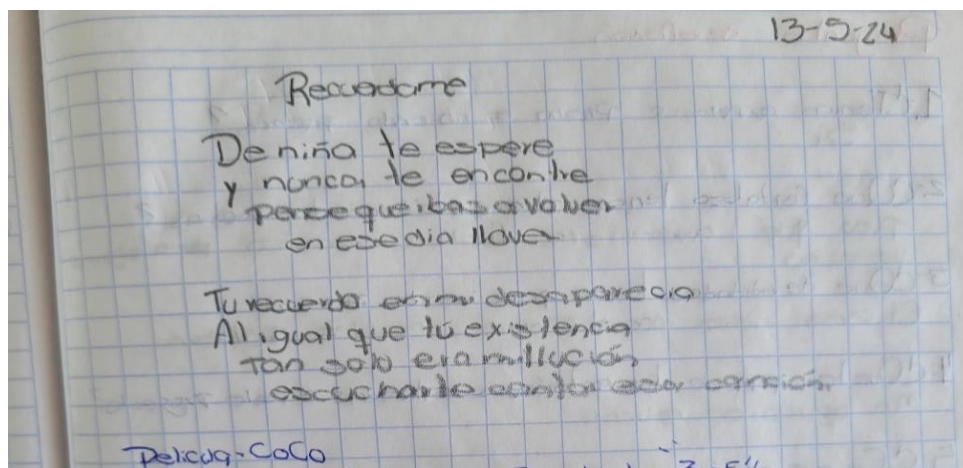 13-5-24
Recuerdame
De niña te espere
y nunca te encontre
pense que ibas a volver
en ese dia llover
Tu recuerdo en mi desaparecio
Al igual que tú existencia
Tan solo era mi llución
escucharte cantar esa canción
Pelicua-CoCo